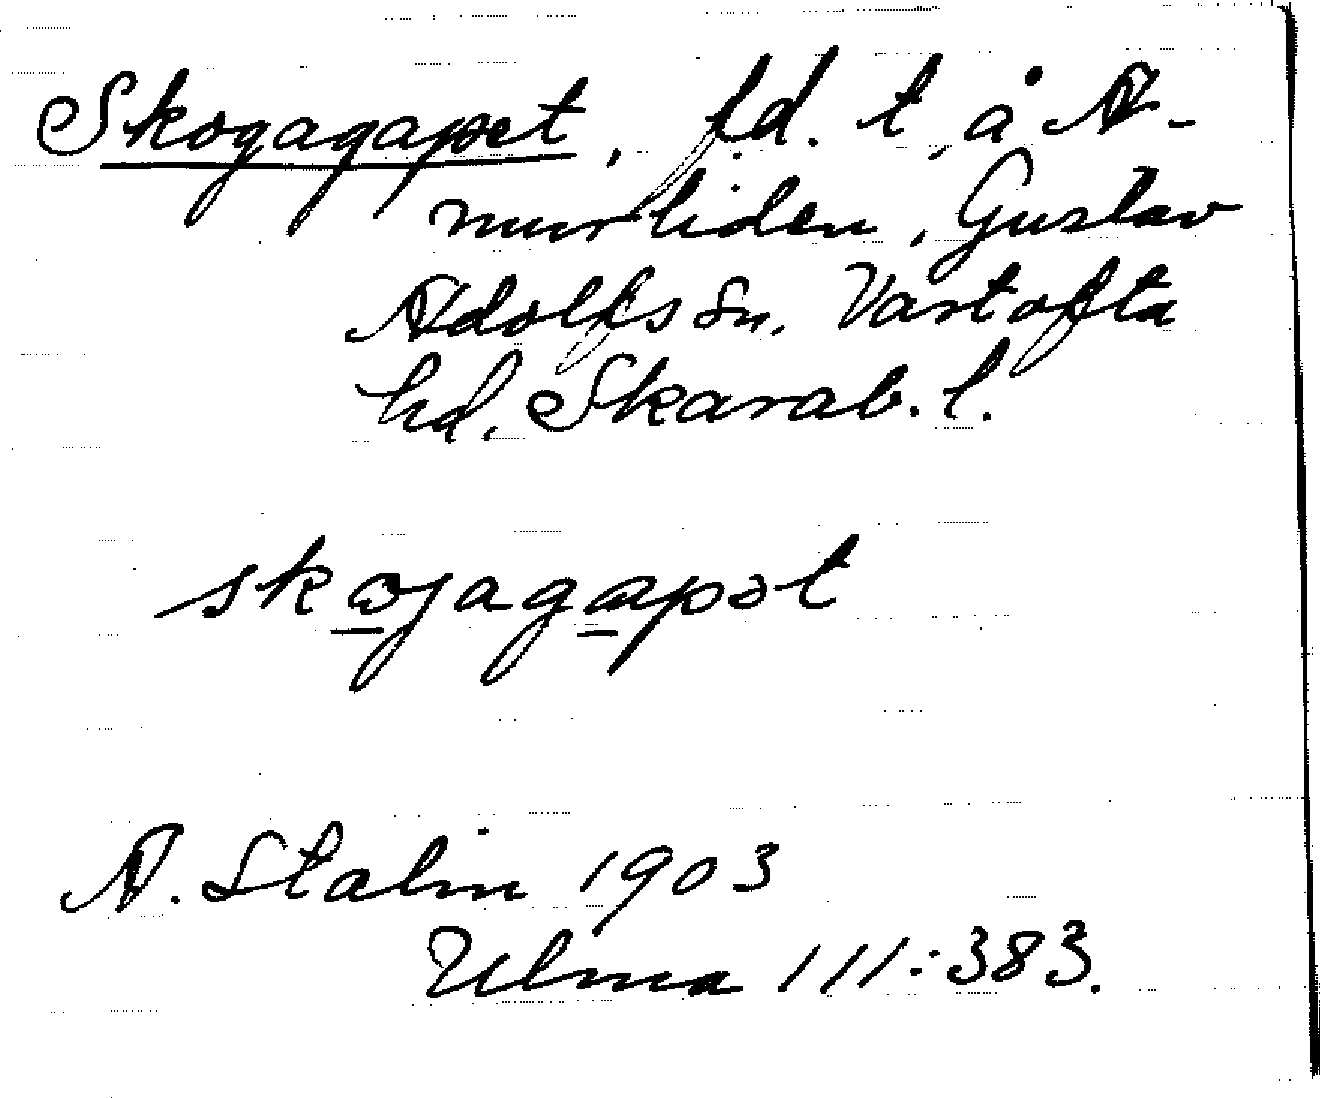 Skogagapet, f.d. t, å A-
murliden, Gustav
Adolfs sn, Vartofta
hd. Skarab. l.
skɷgagapət
A. Stalin 1903
Ulma 111:383.